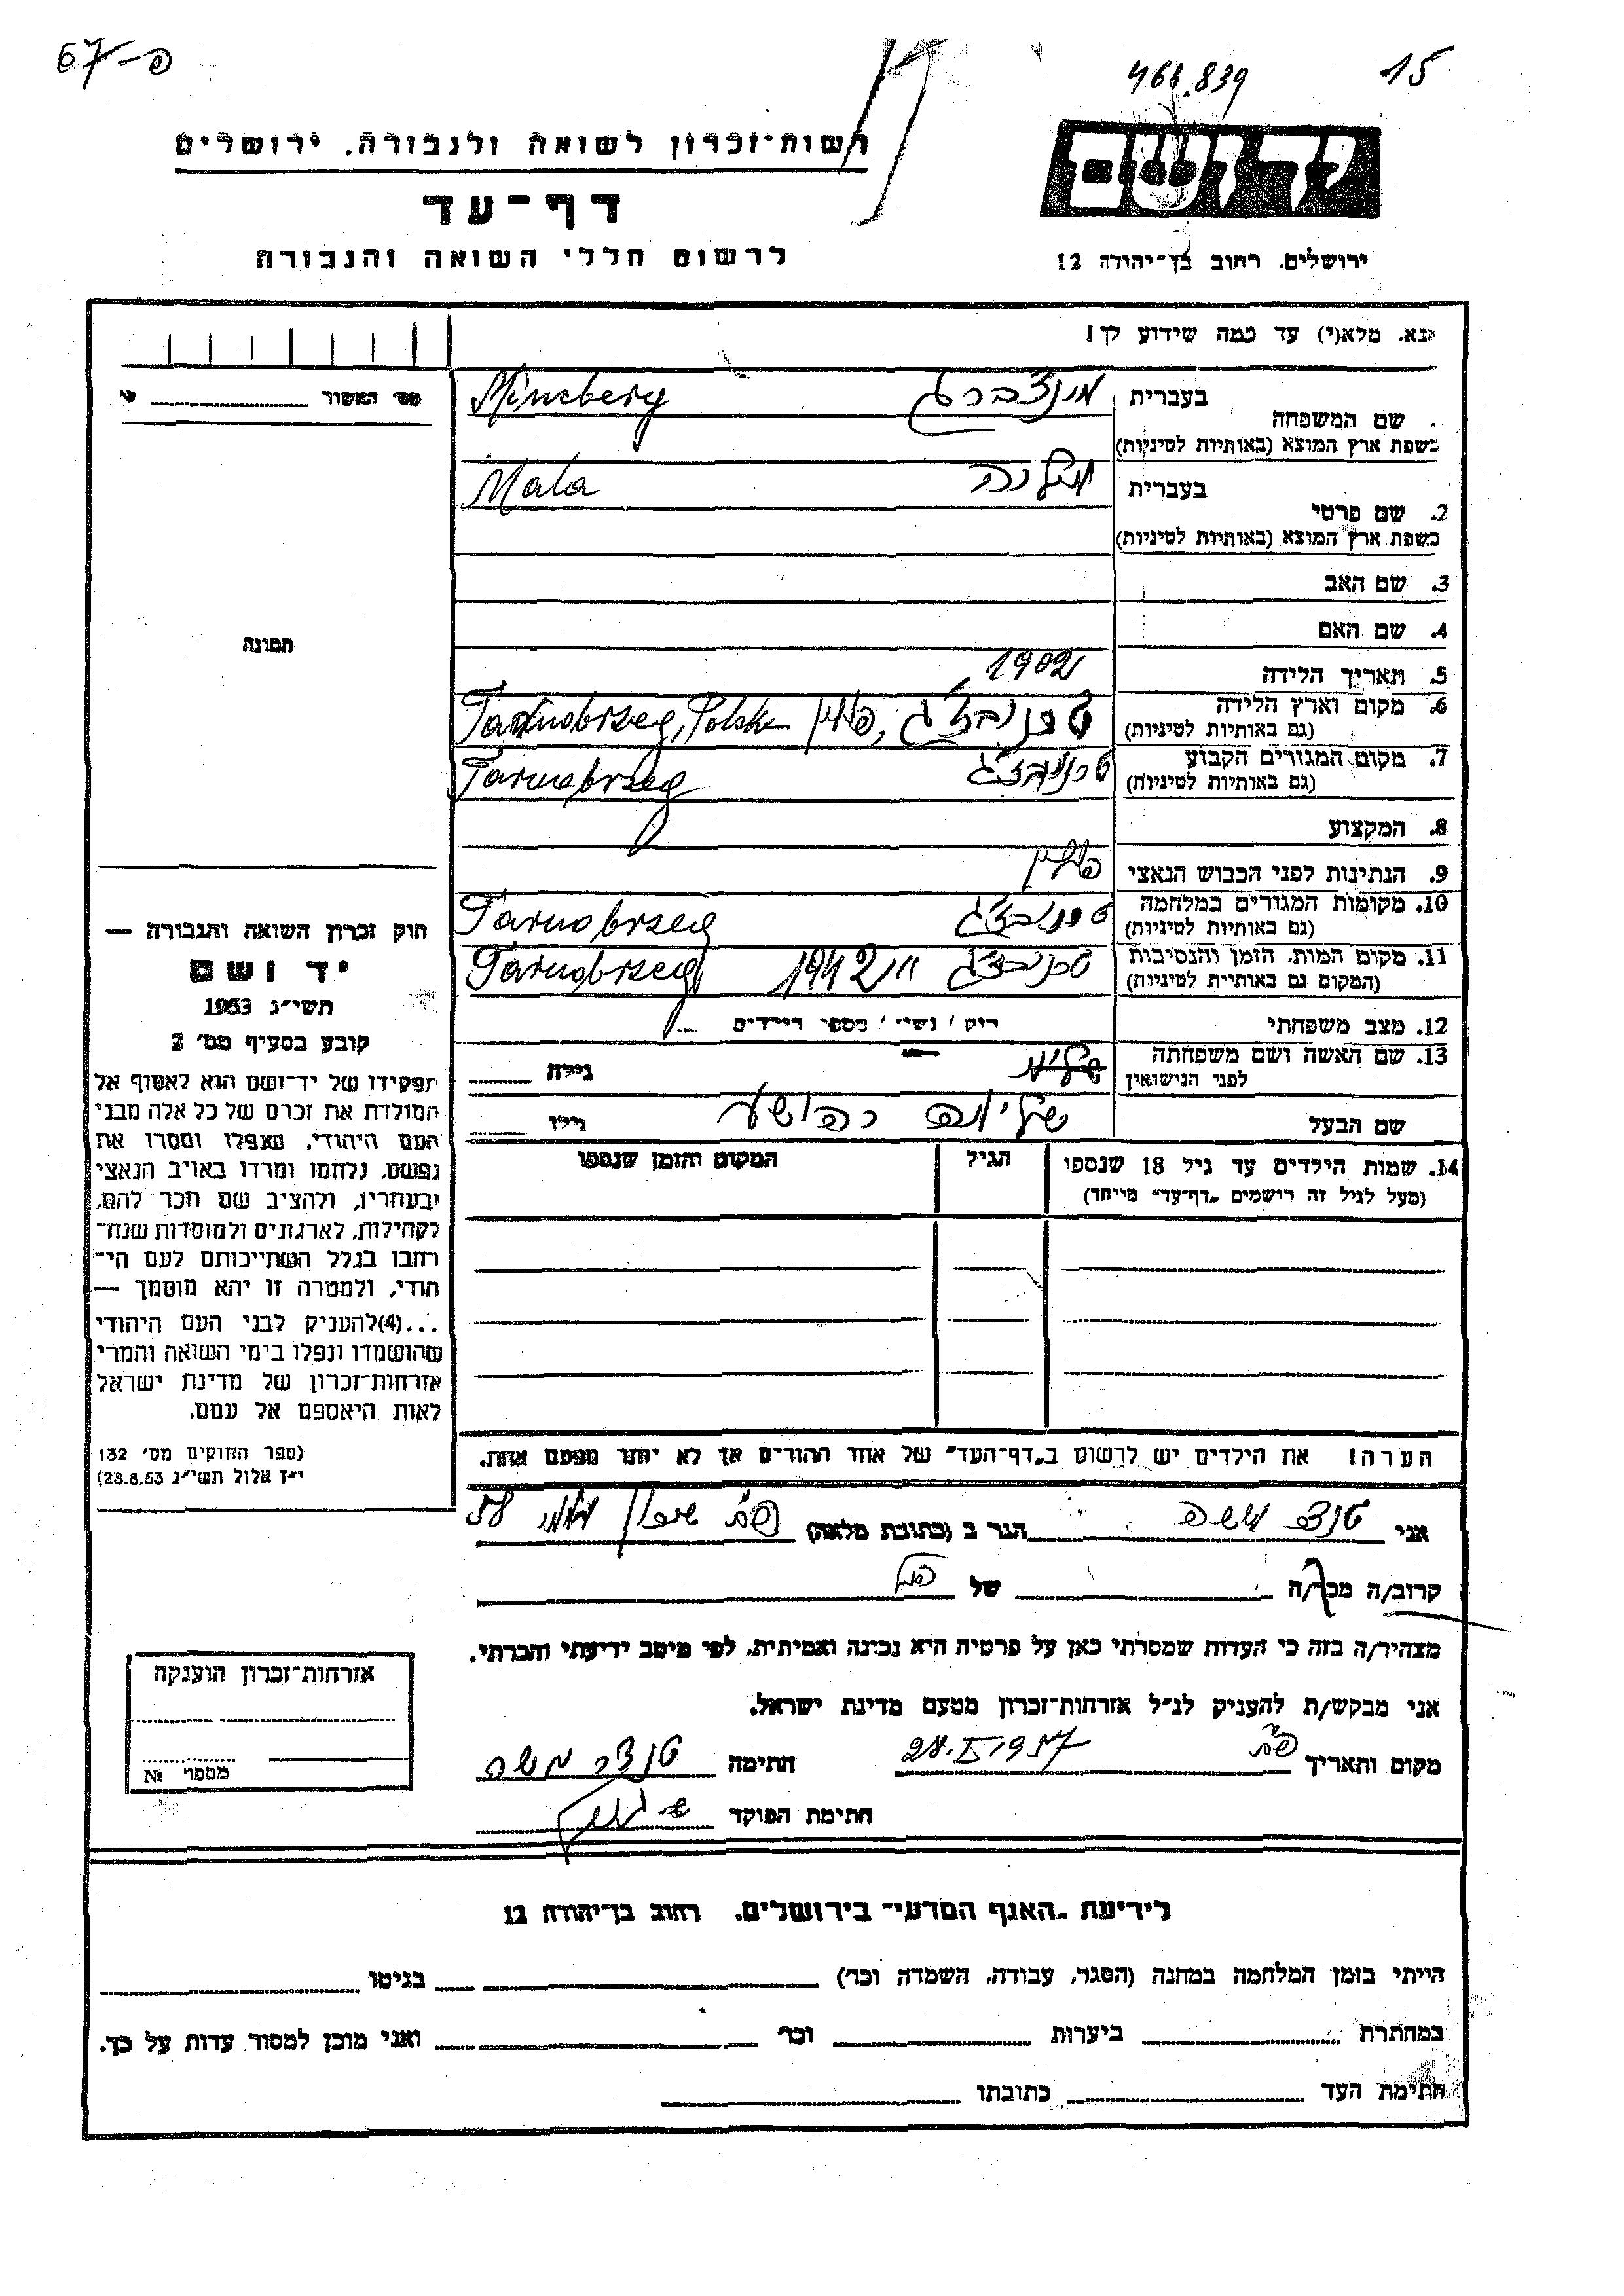 פ-67
463.839 15
רשות־זכרון לשואה ולגבורה. ירושלים
יד ושם
דף־עד
לרשום חללי השואה והגבורה
ירושלים. רחוב בן־יהודה 12
נא. מלא(י) עד כמה שידוע לך!
מס׳ האשור
בעברית מינצברג Minzberg
שם המשפחה
בשפת ארץ המוצא (באותיות לטיניות)
בעברית Mala
2. שם פרטי
בשפת ארץ המוצא (באותיות לטיניות)
3. שם האב
4. שם האם
5. תאריך הלידה 1902
6. מקום וארץ הלידה פולין Tarnobrzeg, Polska
(גם באותיות לטיניות)
7. מקום המגורים הקבוע Tarnobrzeg
(גם באותיות לטיניות)
8. המקצוע
9. הנתינות לפני הכבוש הנאצי פולין
10. מקומות המגורים במלחמה Tarnobrzeg
(גם באותיות לטיניות)
11. מקום המות. הזמן והנסיבות 1942 Tarnobrzeg
(המקום גם באותיות לטיניות)
12. מצב משפחתי רוק / נשוי / מספר הילדים
13. שם האשה ושם משפחתה גילה
לפני הנישואין
שם הבעל יהושע גילו
14. שמות הילדים עד גיל 18 שנספו הגיל המקום והזמן שנספו
(מעל לגיל זה רישמים „דף־עד״ מייחד)
הערה! את הילדים יש לרשום ב„דף־העד״ של אחד ההורים אך לא יותר מפעם אחת.
תמונה
חוק זכרון השואה והגבורה —
יד ושם
תשי״ג 1953
קובע בסעיף מס׳ 2
תפקידו של יד־ושם הוא לאסוף אל
המולדת את זכרם של כל אלה מבני
העם היהודי, שנפלו ומסרו את
נפשם, נלחמו ומרדו באויב הנאצי
ובעוזריו, ולהציב שם וזכר להם,
לקהילות, לארגונים ולמוסדות שנח־
רבו בגלל השתייכותם לעם הי־
הודי, ולמטרה זו יהא מוסמך —
...(4)להעניק לבני העם היהודי
שהושמדו ונפלו בימי השואה והמרי
אזרחות־זכרון של מדינת ישראל
לאות היאספם אל עמם.
(ספר החוקים מס׳ 132
י״ז אלול תשי״ג 28.8.53)
אני משה הגר ב (כתובת מלאה)
קרוב/ה מכר/ה של
מצהיר/ה בזה כי העדות שמסרתי כאן על פרטיה היא נכונה ואמיתית, לפי מיטב ידיעתי והכרתי.
אני מבקש/ת להעניק לנ״ל אזרחות־זכרון מטעם מדינת ישראל.
מקום ותאריך 1957 חתימה משה
חתימת הפוקד
אזרחות־זכרון הוענקה
מספר №
לידיעת „האגף המדעי״ בירושלים. רחוב בן־יהודה 12
הייתי בזמן המלחמה במחנה (הסגר, עבודה, השמדה וכד׳) בגיטו
במחתרת ביערות וכד׳ ואני מוכן למסור עדות על כך.
חתימת העד כתובתו